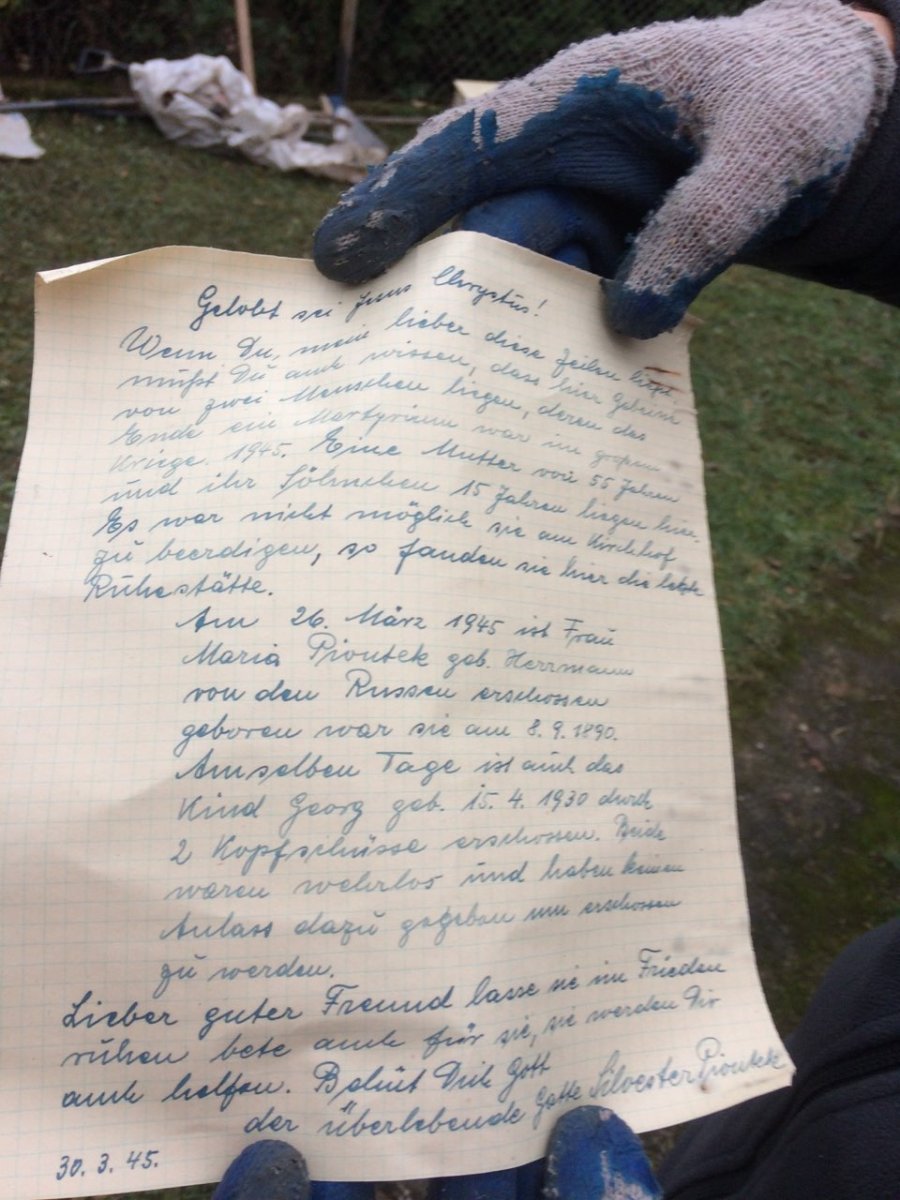 Gelobt sei Jesus Chrystus!
Wenn Du, mein lieber diese Zeilen liest
mußt Du auch wissen, dass hier Gebeine
von zwei Menschen liegen, deren das
Ende ein Martyrium war im grossen
Kriege. 1945. Eine Mutter von 55 Jahren
und ihr Söhnchen 15 Jahren liegen hier.
Es war nicht möglich sie am Kirchhof
zu beerdigen, so fanden sie hier die letzte
Ruhestätte.
Am 26. März 1945 ist Frau
Maria Piontek geb. Herrmann
von den Russen erschossen
geboren war sie am 8.9.1890.
Amselben Tage ist auch das
Kind Georg geb. 15.4.1930 durch
2 Kopfschüsse erschossen. Beide
waren wehrlos und haben keinen
Anlass dazu gegeben um erschossen
zu werden.
Lieber guter Freund lasse sie im Frieden
ruhen bete auch für sie, sie werden Dir
auch helfen. Behüt Dich Gott
der überlebende Gatte Silvester Piontek
30.3.45.